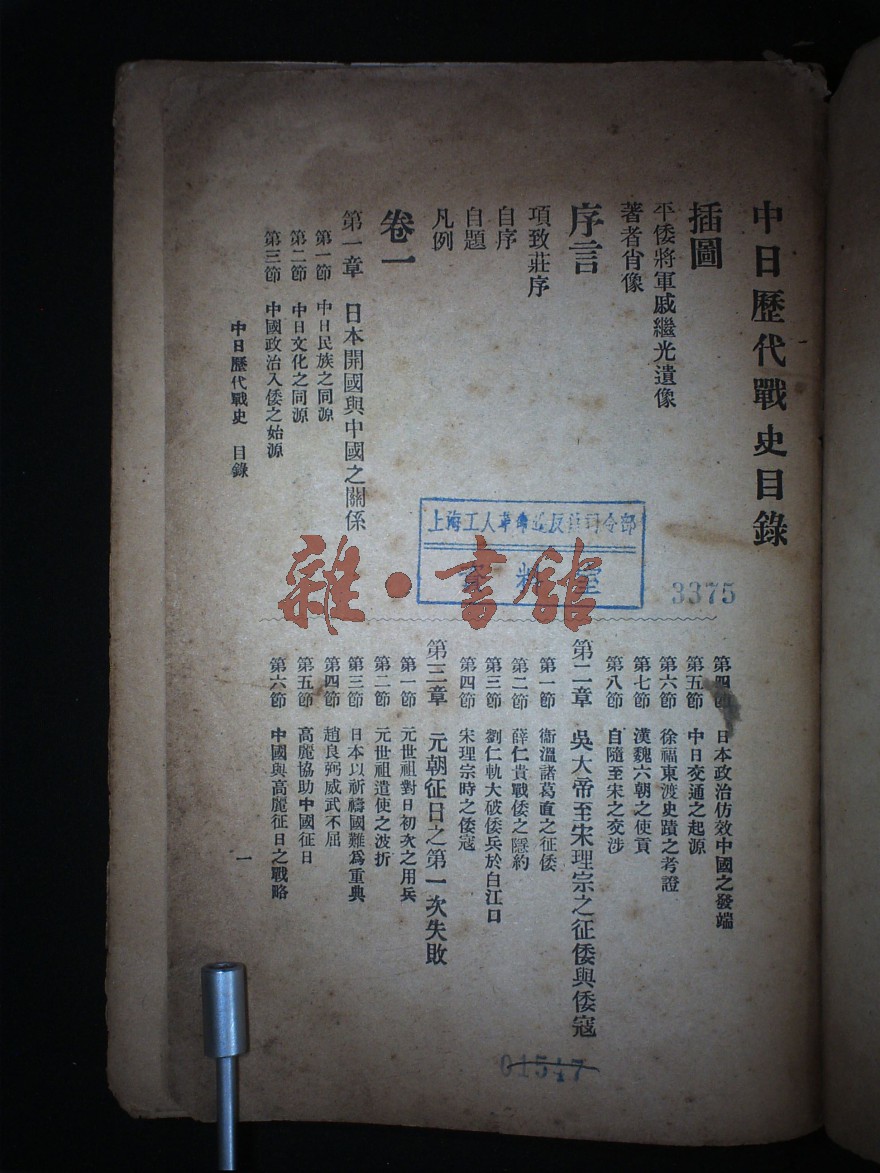 中日歷代戰史目錄
插圖
平倭將軍戚繼光遺像
著者肖像
序言
項致莊序
自序
自題
凡例
卷一
第一章 日本開國與中國之關係
第一節 中日民族之同源
第二節 中日文化之同源
第三節 中國政治入倭之始源
第四節 日本政治仿效中國之發端
第五節 中日交通之起源
第六節 徐福東渡史蹟之考證
第七節 漢魏六朝之使貢
第八節 自隨至宋之交涉
第二章 吳大帝至宋理宗之征倭與倭寇
第一節 衞溫諸葛直之征倭
第二節 薛仁貴戰倭之隱約
第三節 劉仁軌大破倭兵於白江口
第四節 宋理宗時之倭寇
第三章 元朝征日之第一次失敗
第一節 元世祖對日初次之用兵
第二節 元世祖遣使之波折
第三節 日本以祈禱國難爲重典
第四節 趙良弼威武不屈
第五節 高麗協助中國征日
第六節 中國與高麗征日之戰略
中日歷代戰史 目錄
一
上海工人革命造反總司令部
資料室
3375
雜·書館
01517